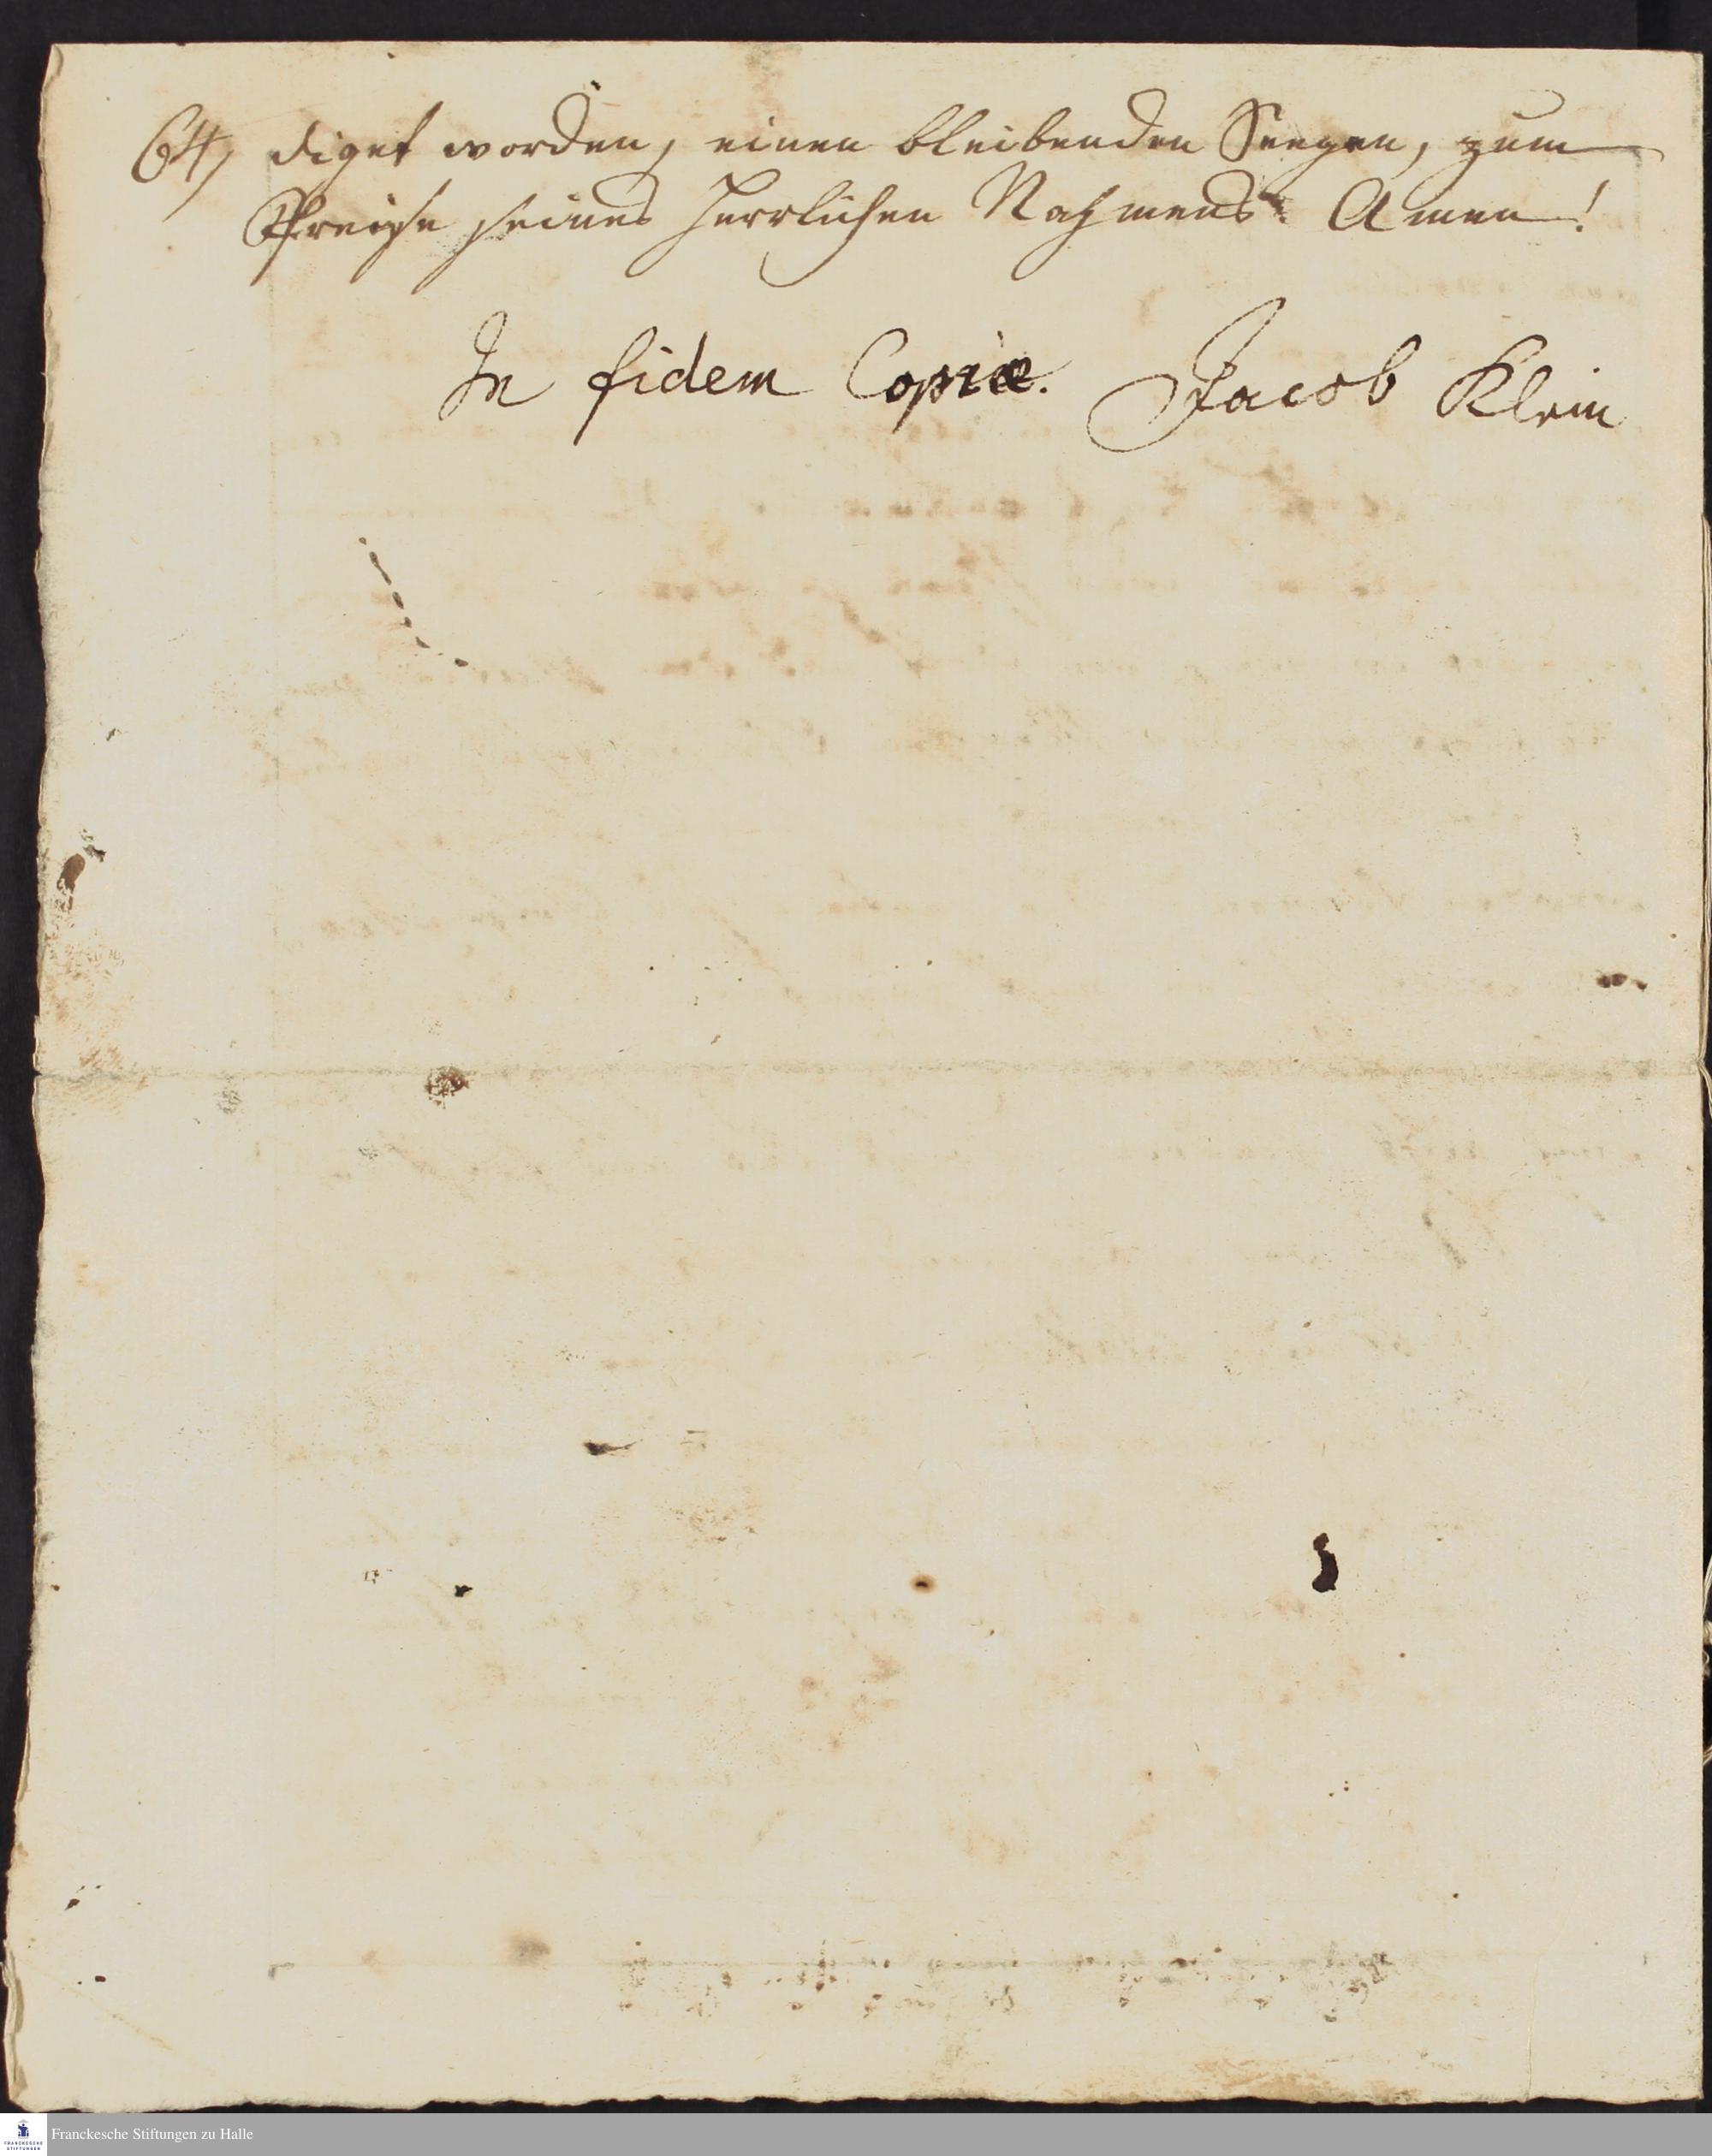 64, diget worden, einen bleibenden Seegen, zum
Preise seines herrlichen Nahmens. Amen!
In fidem Copiæ. Jacob Klein
FRANCKESCHE STIFTUNGEN
Franckesche Stiftungen zu Halle